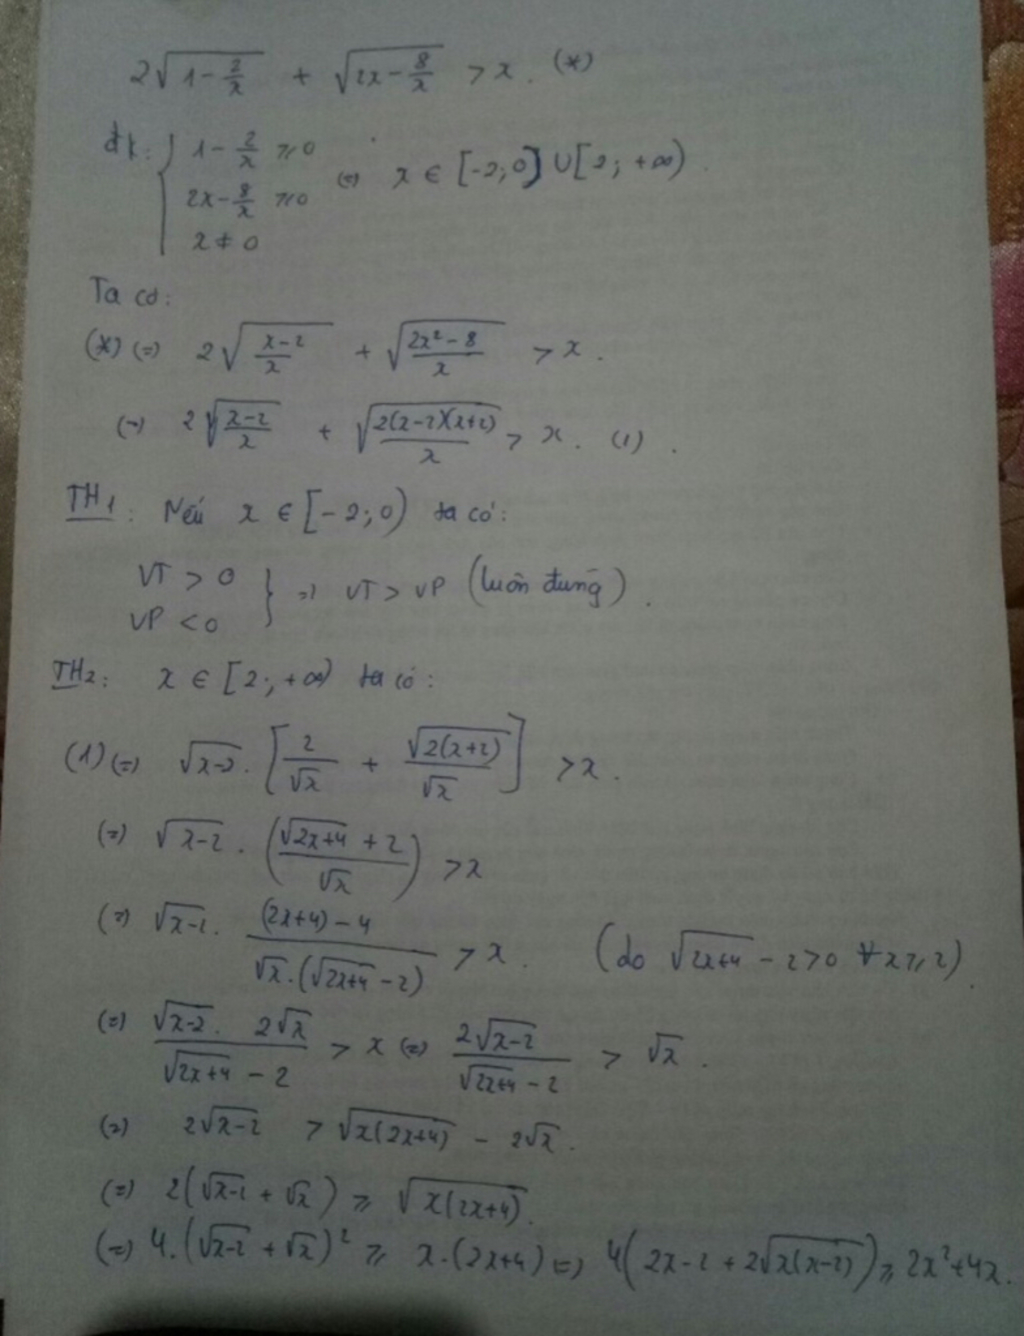 2√(1 - 2/x) + √(2x - 8/x) > x. (*)
đk: { 1 - 2/x ⩾ 0
2x - 8/x ⩾ 0 (=) x ∈ [-2; 0] ∪ [2; +∞).
x ≠ 0
Ta có:
(*) (=) 2√((x-2)/x) + √((2x² - 8)/x) > x.
(=) 2√((x-2)/x) + √(2(x-2)(x+2)/x) > x. (1).
TH1: Nếu x ∈ [-2; 0) ta có:
VT > 0
VP < 0 } => VT > VP (luôn đúng).
TH2: x ∈ [2; +∞) ta có:
(1) (=) √(x-2) . [2/√x + √(2(x+2))/√x] > x.
(=) √(x-2) . ((√(2x+4) + 2)/√x) > x
(=) √(x-2) . ((2x+4) - 4)/(√x . (√(2x+4) - 2)) > x. (do √(2x+4) - 2 > 0 ∀x ⩾ 2).
(=) (√(x-2) . 2√x)/(√(2x+4) - 2) > x (=) 2√(x-2)/(√(2x+4) - 2) > √x.
(=) 2√(x-2) > √(x(2x+4)) - 2√x.
(=) 2(√(x-2) + √x) ⩾ √(x(2x+4)).
(=) 4.(√(x-2) + √x)² ⩾ x.(2x+4) (=) 4(2x-2 + 2√(x(x-2))) ⩾ 2x² + 4x.